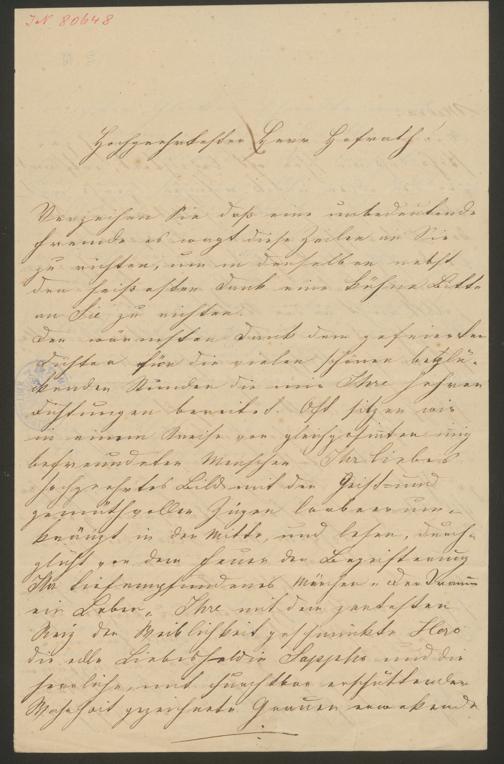 I.N. 80648
Hochgeehrtester Herr Hofrath!
Verzeihen Sie daß eine unbedeutende
Fremde es wagt diese Zeilen an Sie
zu richten, um in denselben nebst
den heißesten Dank eine kühne Bitte
an Sie zu richten.
Den wärmsten Dank dem gefeierten
Dichter für die vielen schönen beglü-
ckenden Stunden die mir Ihre hehren
Dichtungen bereitet. Oft sitzen wir
in einem Kreise von gleichgesinnten mir
befreundeten Menschen Ihr liebes
hochgeehrtes Bild mit den Geist- und
gemüthvollen Zügen lorbeerum-
kränzt in der Mitte, und lesen, durch-
glüht von dem Feuer der Begeisterung
Ihr tiefempfundenes Märchen „Der Traum
ein Leben„ Ihre mit dem zartesten
Reiz der Weiblichkeit geschmückte Hero
die edle Liebesheldin Sappho und die
herrliche mit furchtbar erschütternder
Wahrheit gezeichnete Grauen erweckende